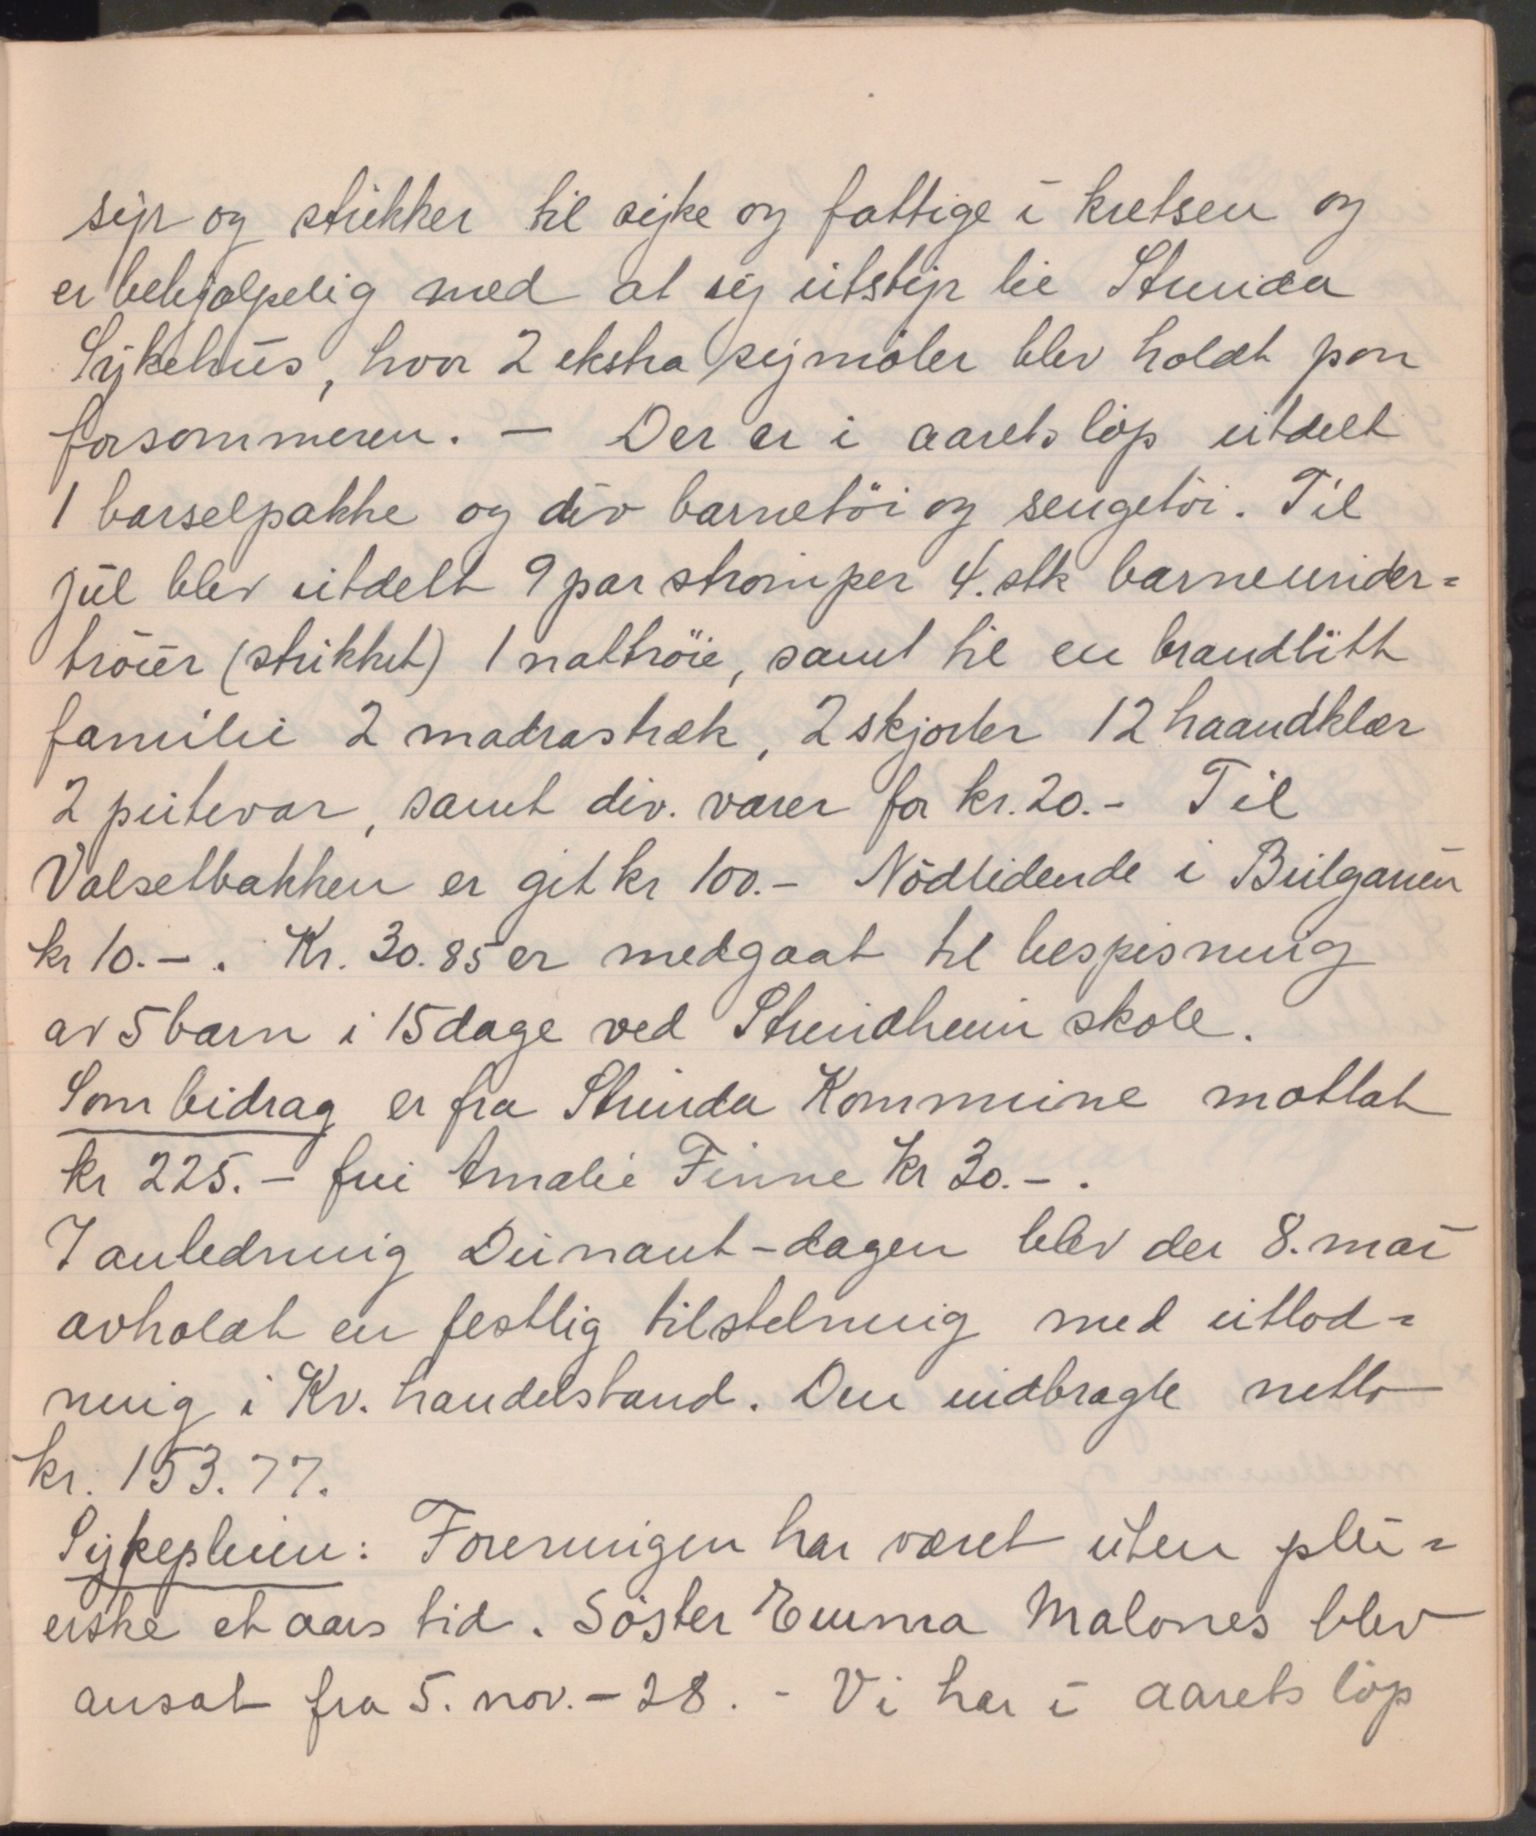 syr og strikker til syke og fattige i kretsen og
er behjælpelig med at sy utstyr til Strinda
Sykehus, hvor 2 ekstra symøter blev holdt paa
forsommeren. – Der er i aarets løp utdelt
1 barselpakke og div barnetöi og sengetöi. Til
jul blev utdelt 9 par strømper 4. stk barneunder=
tröier (strikket) 1 nattröie, samt til en brandlitt
familie 2 madrastræk, 2 skjorter 12 haandklær
2 putevar, samt div. varer for kr. 20.- Til
Valsetbakken er git kr 100.- Nödlidende i Bulgarien
kr 10.-. Kr. 30.85 er medgaat til bespisning
av 5 barn i 15 dage ved Strindheim skole.
Som bidrag er fra Strinda Kommune mottat
kr 225.- fru Amalie Finne Kr 30.-.
I anledning Dunant-dagen blev der 8. mai
avholdt en festlig tilstelning med utlod=
ning i Kv. handelstand. Den indbragte netto
kr. 153.77.
Sykepleien: Foreningen har været uten plei=
erske et aars tid. Söster Emma Malones blev
ansat fra 5. nov. - 28. - Vi har i aarets löp